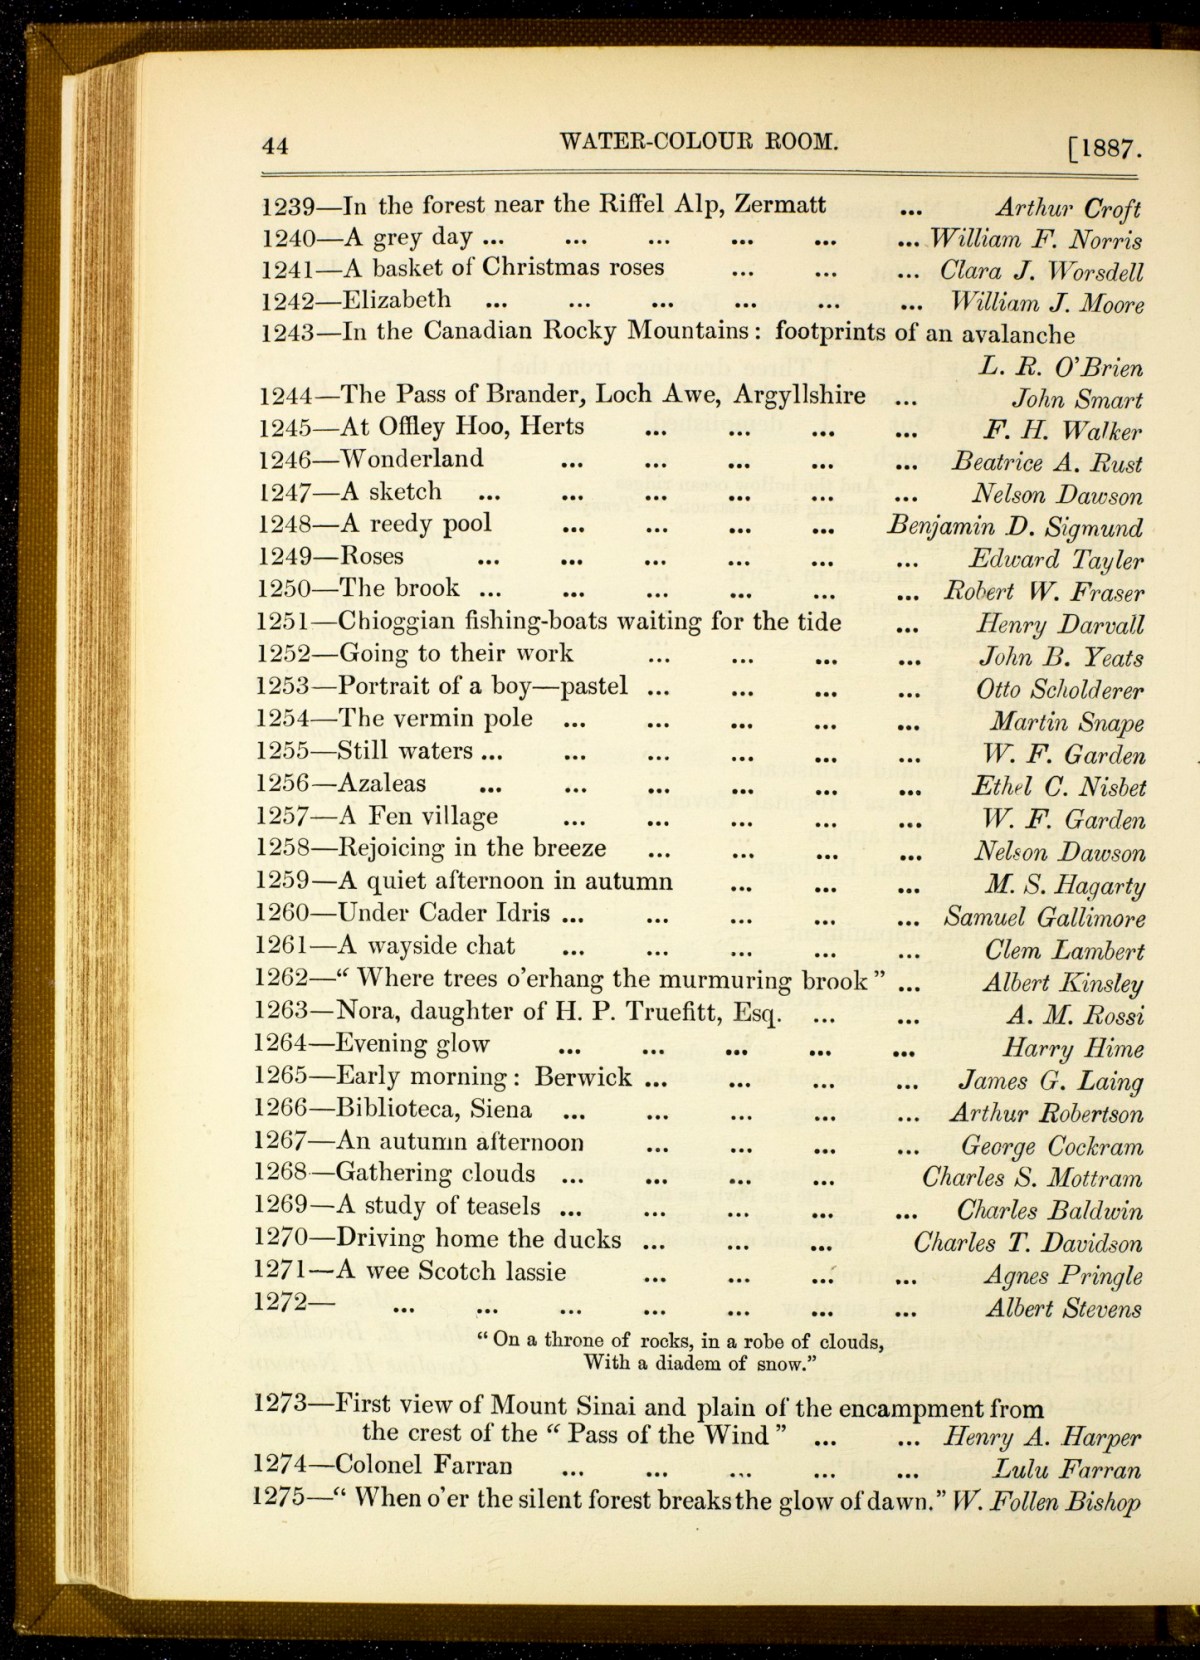 44 WATER-COLOUR ROOM. [1887.
1239—In the forest near the Riffel Alp, Zermatt ... Arthur Croft
1240—A grey day ... ... ... ... ... ... William F. Norris
1241—A basket of Christmas roses ... ... ... Clara J. Worsdell
1242—Elizabeth ... ... ... ... ... ... William J. Moore
1243—In the Canadian Rocky Mountains: footprints of an avalanche
L. R. O'Brien
1244—The Pass of Brander, Loch Awe, Argyllshire ... John Smart
1245—At Offley Hoo, Herts ... ... ... ... F. H. Walker
1246—Wonderland ... ... ... ... ... Beatrice A. Rust
1247—A sketch ... ... ... ... ... ... Nelson Dawson
1248—A reedy pool ... ... ... ... Benjamin D. Sigmund
1249—Roses ... ... ... ... ... ... Edward Tayler
1250—The brook ... ... ... ... ... ... Robert W. Fraser
1251—Chioggian fishing-boats waiting for the tide ... Henry Darvall
1252—Going to their work ... ... ... ... John B. Yeats
1253—Portrait of a boy—pastel ... ... ... ... Otto Scholderer
1254—The vermin pole ... ... ... ... ... Martin Snape
1255—Still waters ... ... ... ... ... ... W. F. Garden
1256—Azaleas ... ... ... ... ... ... Ethel C. Nisbet
1257—A Fen village ... ... ... ... ... W. F. Garden
1258—Rejoicing in the breeze ... ... ... ... Nelson Dawson
1259—A quiet afternoon in autumn ... ... ... M. S. Hagarty
1260—Under Cader Idris ... ... ... ... ... Samuel Gallimore
1261—A wayside chat ... ... ... ... ... Clem Lambert
1262—“ Where trees o'erhang the murmuring brook ” ... Albert Kinsley
1263—Nora, daughter of H. P. Truefitt, Esq. ... ... A. M. Rossi
1264—Evening glow ... ... ... ... ... Harry Hime
1265—Early morning: Berwick ... ... ... ... James G. Laing
1266—Biblioteca, Siena ... ... ... ... ... Arthur Robertson
1267—An autumn afternoon ... ... ... ... George Cockram
1268—Gathering clouds ... ... ... ... Charles S. Mottram
1269—A study of teasels ... ... ... ... ... Charles Baldwin
1270—Driving home the ducks ... ... ... Charles T. Davidson
1271—A wee Scotch lassie ... ... ... ... Agnes Pringle
1272— ... ... ... ... ... ... ... Albert Stevens
“ On a throne of rocks, in a robe of clouds,
With a diadem of snow.”
1273—First view of Mount Sinai and plain of the encampment from
the crest of the “ Pass of the Wind ” ... ... Henry A. Harper
1274—Colonel Farran ... ... ... ... ... Lulu Farran
1275—“ When o'er the silent forest breaks the glow of dawn.” W. Follen Bishop